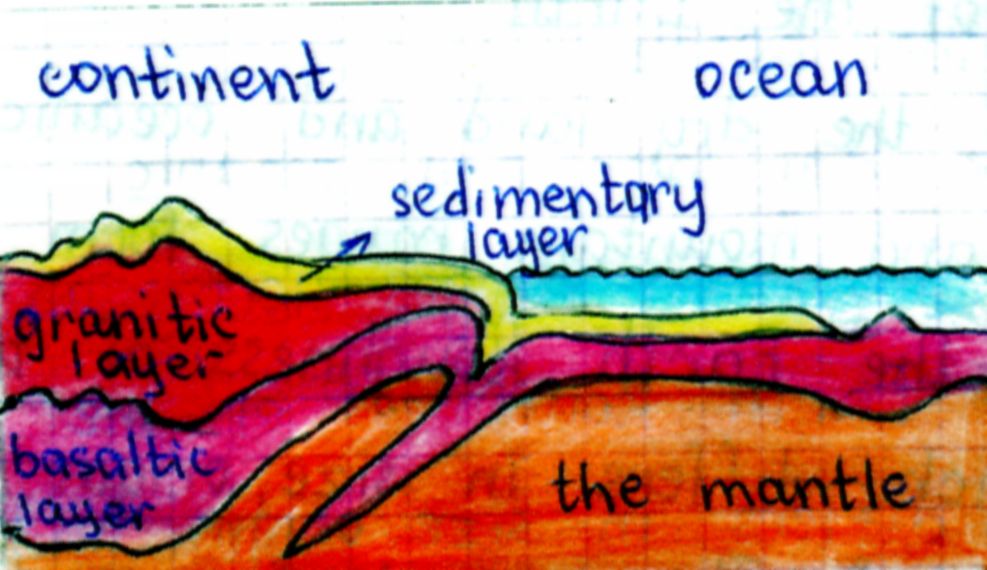 continent
ocean
sedimentary
layer
granitic
layer
basaltic
layer
the mantle